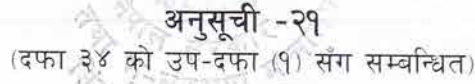 अनुसूची -२१
(दफा ३४ को उप-दफा (१) सँग सम्बन्धित)